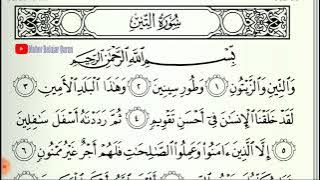 سُورَةُ التِّينِ
Mahir Belajar Quran
بِسْمِ اللَّهِ الرَّحْمَٰنِ الرَّحِيمِ
وَالتِّينِ وَالزَّيْتُونِ ١ وَطُورِ سِينِينَ ٢ وَهَٰذَا الْبَلَدِ الْأَمِينِ ٣
لَقَدْ خَلَقْنَا الْإِنسَٰنَ فِي أَحْسَنِ تَقْوِيمٍ ٤ ثُمَّ رَدَدْنَٰهُ أَسْفَلَ سَٰفِلِينَ
٥ إِلَّا الَّذِينَ ءَامَنُوا وَعَمِلُوا الصَّٰلِحَٰتِ فَلَهُمْ أَجْرٌ غَيْرُ مَمْنُونٍ ٦